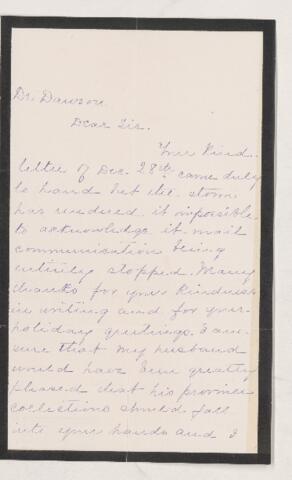 Dr. Dawson
Dear Sir.
Your kind
letter of Dec. 28th came duly
to hand but the storm
has rendered it impossible
to acknowledge it mail
communication being
entirely stopped. Many
thanks for your kindness
in writing and for your
holiday greetings. I am
sure that my husband
would have been greatly
pleased that his province
collections should fall
into your hands and I